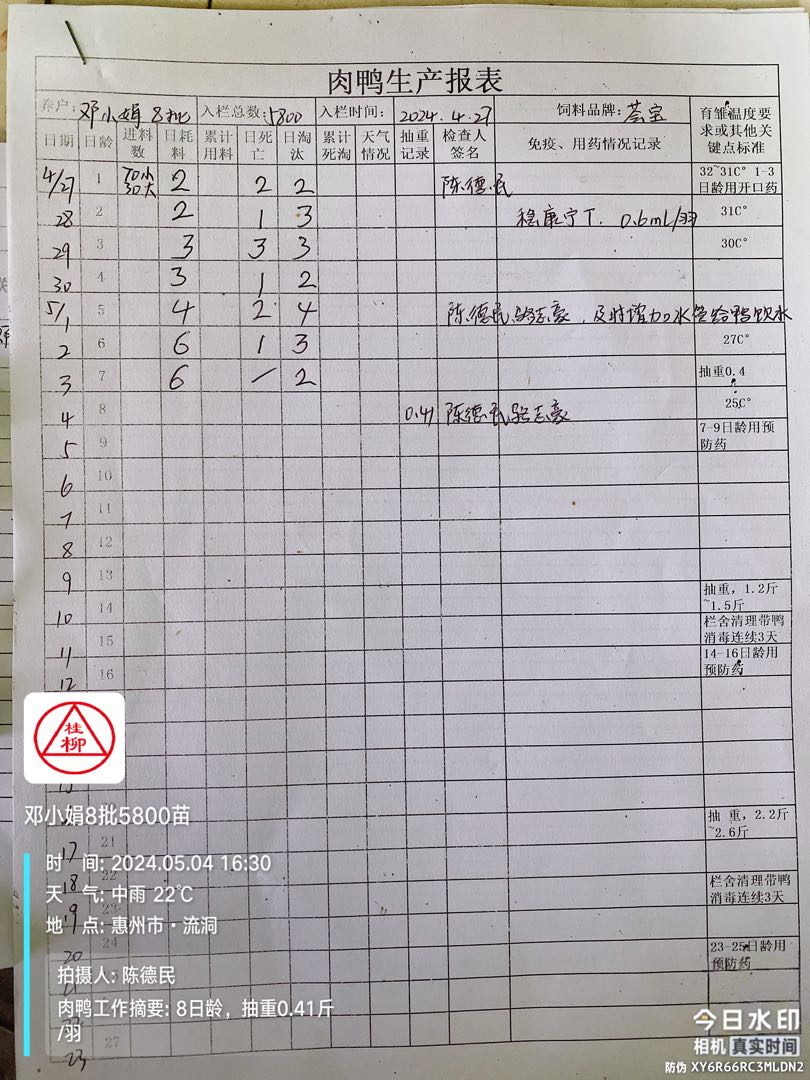 肉鸭生产报表
养户: 邓小娟 8批 入栏总数: 5800 入栏时间: 2024.4.27 饲料品牌: 荟宝 育雏温度要求或其他关键点标准
日期 日龄 进料数 日耗料 累计用料 日死亡 日淘汰 累计死淘 天气情况 抽重记录 检查人签名 免疫、用药情况记录
4/27 1 70小 30大 2 2 2 陈德民 32~31C° 1-3日龄用开口药
28 2 2 1 3 稳康宁T. 0.6mL/羽 31C°
29 3 3 3 3 30C°
30 4 3 1 2
5/1 5 4 2 4 陈德民骆志豪，及时增加水管给鸭饮水
2 6 6 1 3 27C°
3 7 6 — 2 抽重0.4
4 8 0.41 陈德民骆志豪 25C°
5 9 7-9日龄用预防药
6 10
7 11
8 12
9 13
10 14 抽重，1.2斤~1.5斤
11 15 栏舍清理带鸭消毒连续3天
12 16 14-16日龄用预防药
桂柳
邓小娟8批5800苗
17 21 抽 重，2.2斤~2.6斤
时 间: 2024.05.04 16:30
18 22 栏舍清理带鸭消毒连续3天
天 气: 中雨 22℃
19 23
地 点: 惠州市·流洞
20 24 23-25日龄用预防药
拍摄人: 陈德民
肉鸭工作摘要: 8日龄，抽重0.41斤
/羽
23 27
今日水印
相机 真实时间
防伪 XY6R66RC3MLDN2